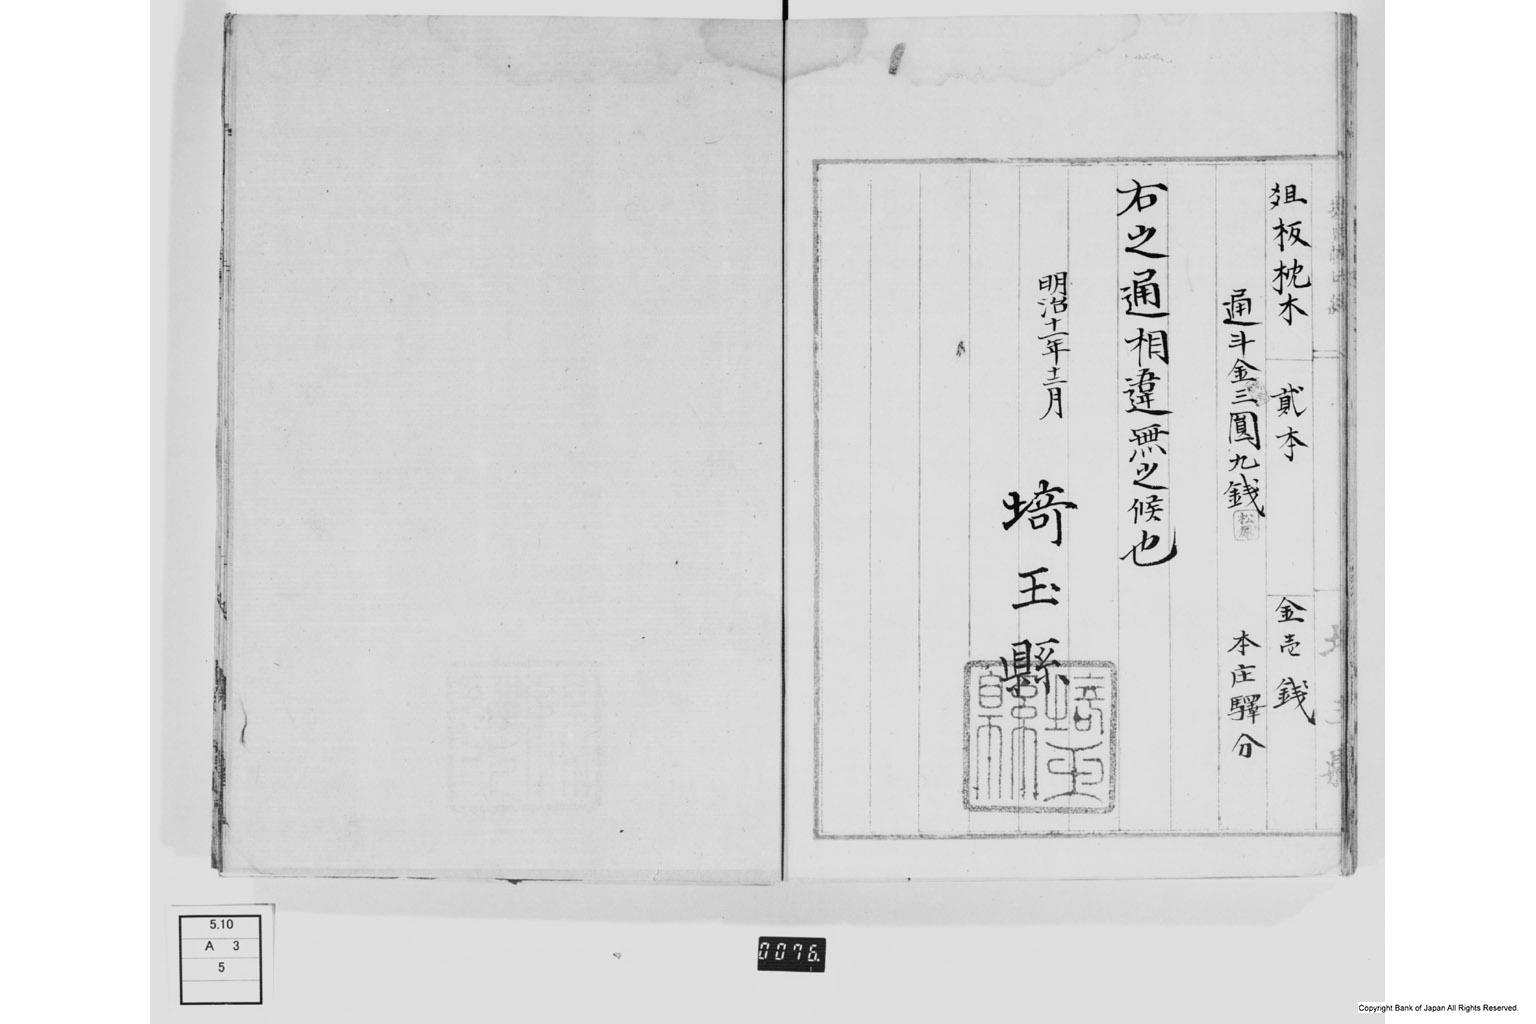 俎板枕木 貳本 金壱錢
通斗金三圓九錢 本庄驛分
松原
右之通相違無之候也
明治十一年十二月
埼玉縣
埼玉縣印
5.10
A 3
5
0076.
Copyright Bank of Japan All Rights Reserved.